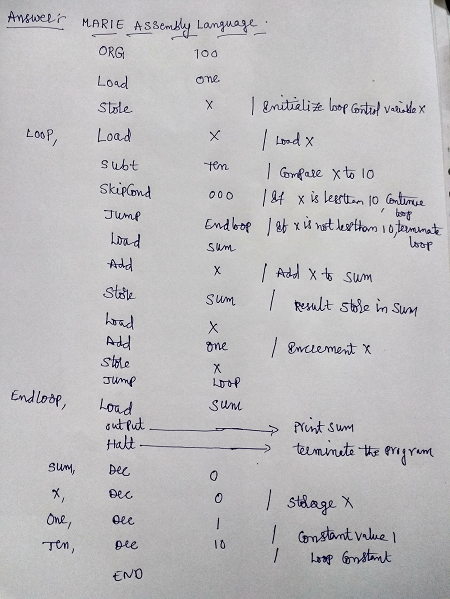 Answer:- MARIE Assembly Language.
ORG 100
Load one
Store X / Initialize loop control variable X
LOOP, Load X / Load X
Subt Ten / Compare X to 10
SkipCond 000 / If X is less than 10, Continue loop
Jump Endloop / If X is not less than 10, terminate loop
Load sum
Add X / Add X to sum
Store sum / Result store in sum
Load X
Add one / Increment X
Store X
Jump Loop
Endloop, Load sum
output → Print sum
Halt → terminate the program
sum, Dec 0
X, Dec 0 / Storage X
One, Dec 1 / Constant value 1
Ten, Dec 10 / Loop Constant
END